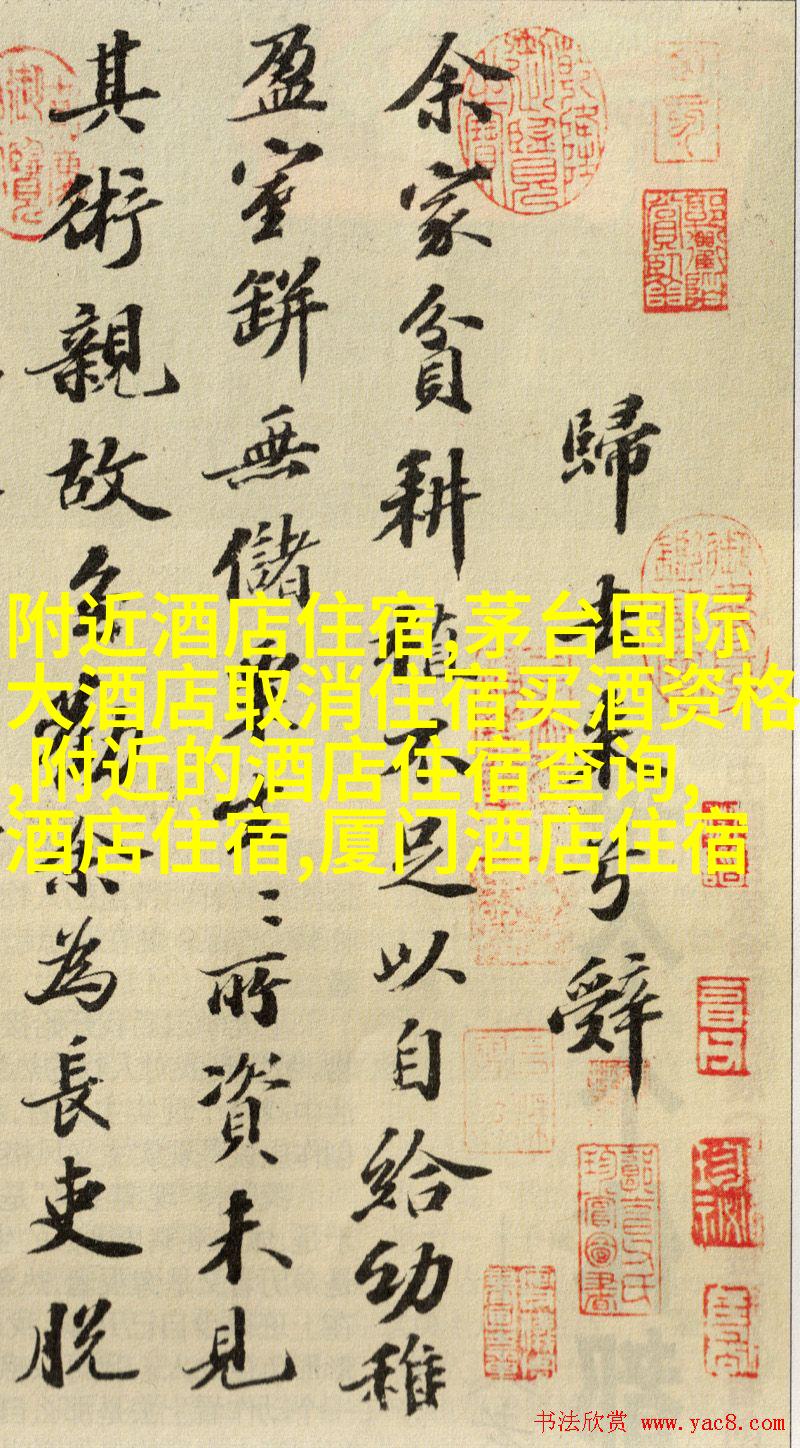 歸去来兮辭
余家貧耕植不足以自給幼稚
盈室缾無儲粟生〻所資未見
其術親故多勸余為長吏脱
附近酒店住宿,茅台国际
大酒店取消住宿买酒资格
,附近的酒店住宿查询,
酒店住宿,厦门酒店住宿
书法欣赏 www.yac8.com